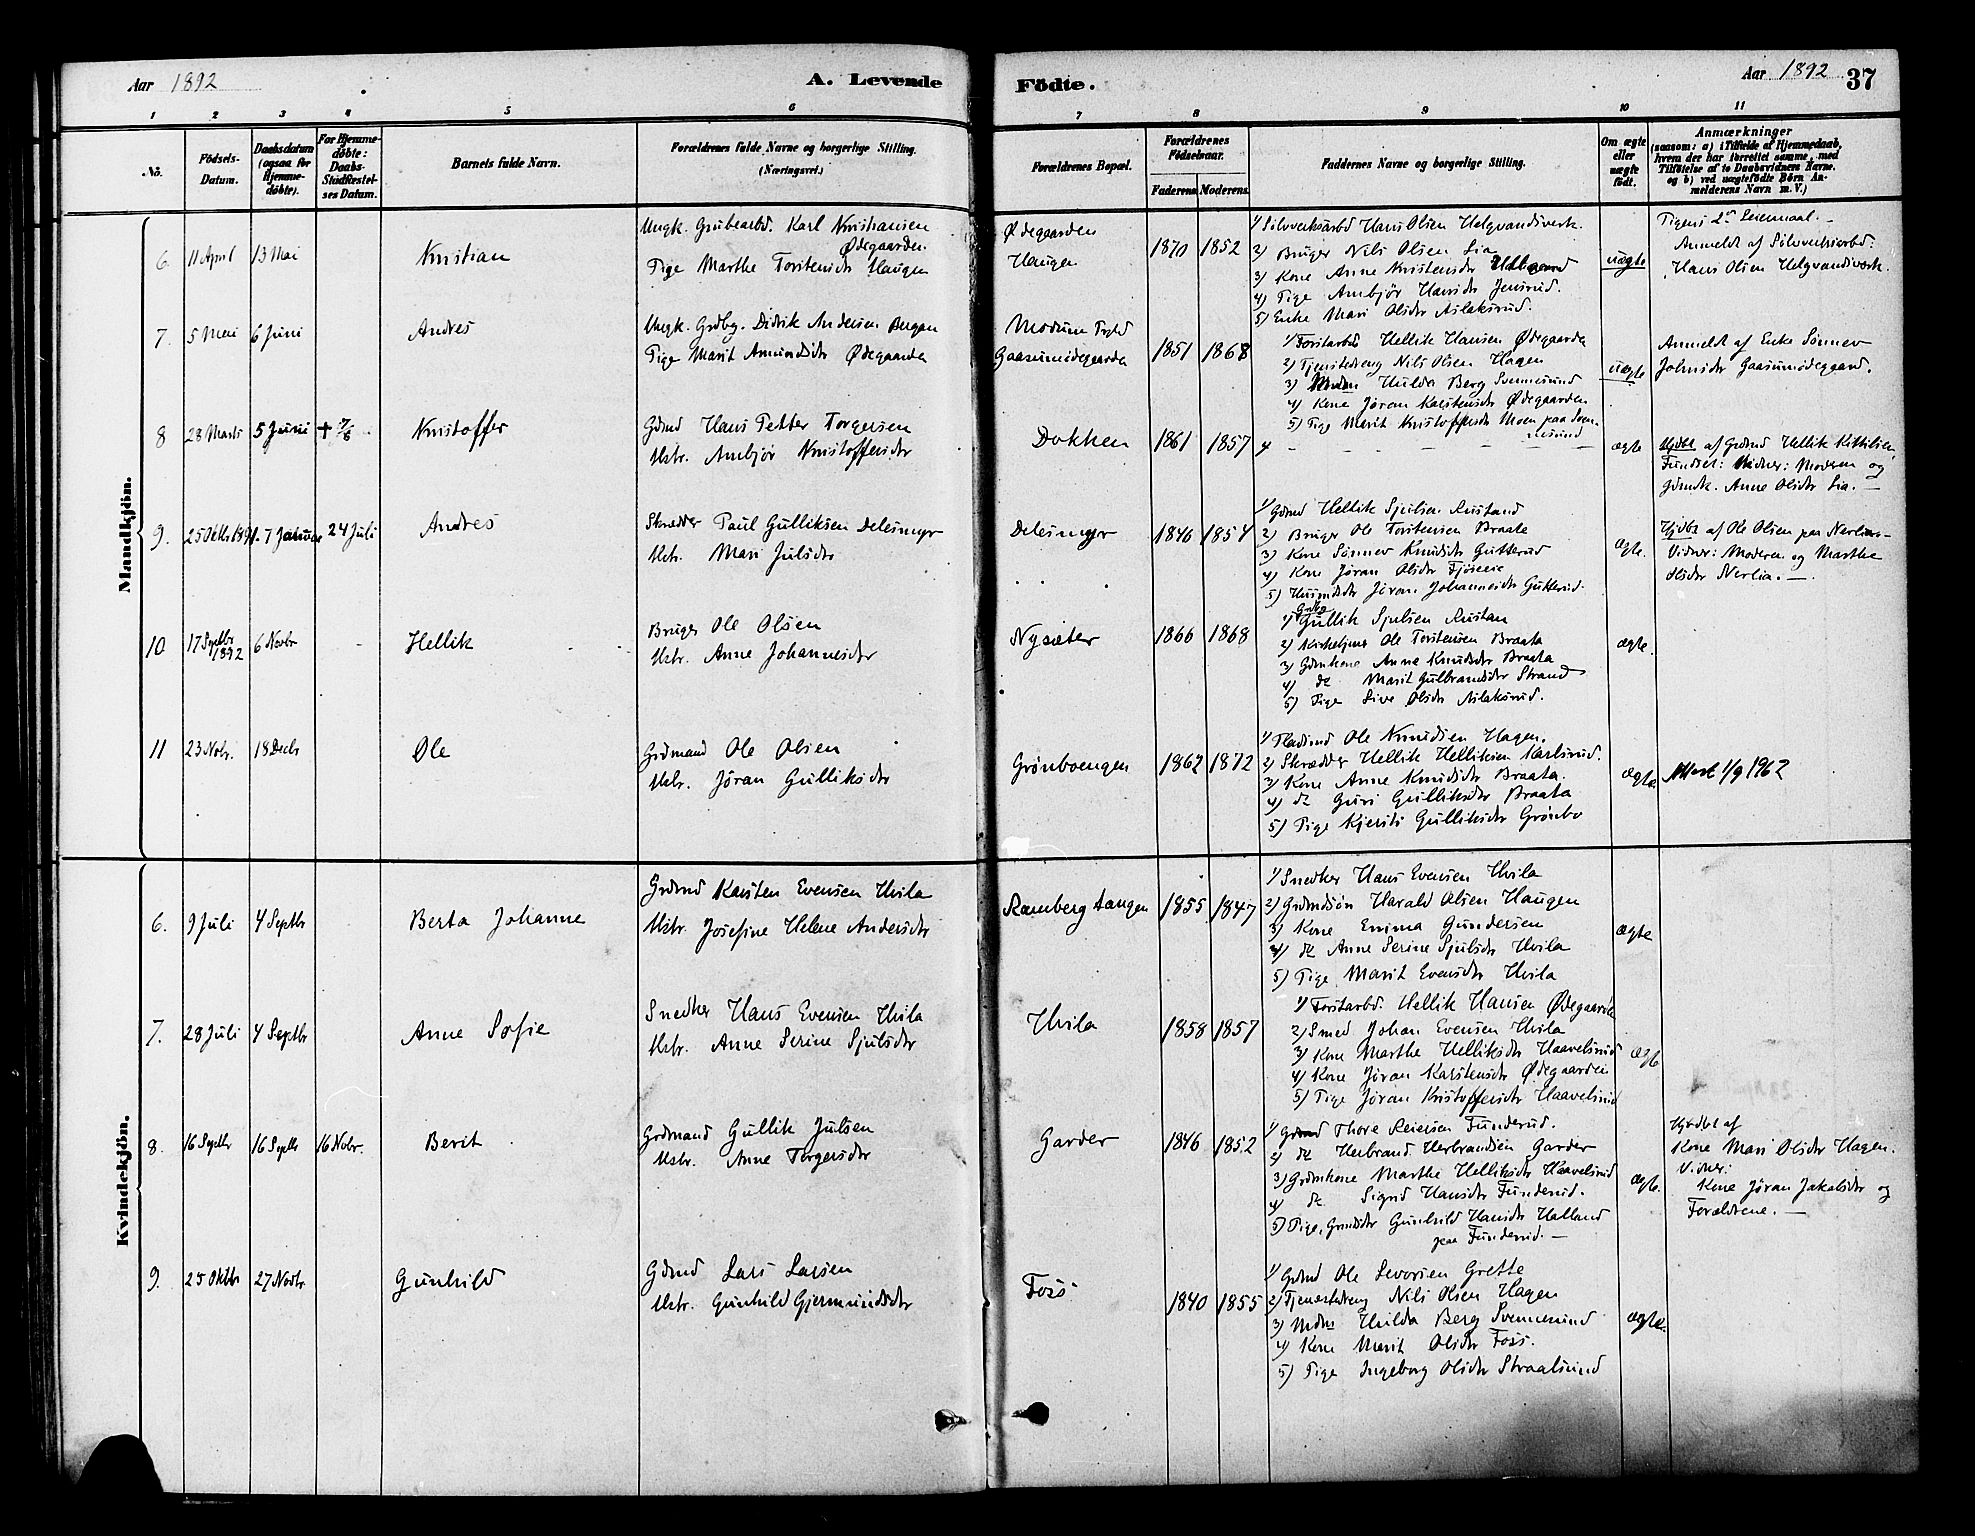 Aar 1892
A. Levende
Födte.
Aar 1892
37
1 2 3 4 5 6 7 8 9 10 11
No.
Födsels-Datum.
Daabsdatum (ogsaa for Hjemme-döbte).
For Hjemme-döbte: Daabs-Stadfæstel-ses Datum.
Barnets fulde Navn.
Forældrenes fulde Navne og borgerlige Stilling.
(Næringsvei.)
Forældrenes Bopæl.
Forældrenes Födselsaar.
Faderens. Moderens.
Faddernes Navne og borgerlige Stilling.
Om ægte eller uægte født.
Anmærkninger
(saasom: a) i Tilfælde af Hjemmedaab, hvem der har forrettet samme, med Tilföielse af to Daabsvidners Navne. og b) ved uægtefödte Börn An-melderens Navn m. V.)
Mandkjön.
6. 11 April 13 Mai
Kristian
Ungk. Grubearbd. Karl Kristiansen
Ødegaarden
Pige Marthe Torstensdtr Haugen
Ødegaarden
Haugen
1870 1852
1) Sölvverksarbd Hans Olsen Helgvandsverk.
2) Bruger Nils Olsen Lia
3) Kone Anne Kristensdtr
4) Pige Ambjör Hansdtr Jensrud.
5) Enke Mari Olsdtr Aslaksrud.
uægte
Pigens 2det Leiermaal.
Anmeldt af Sölvverksarbd:
Hans Olsen Helgvandsverk.
7. 5 Mai 6 Juni
Andres
Ungk. Grdbg. Didrik Andersen Bugan
Pige Marit Amundsdtr Ødegaarden
Modum Prgld
Gaasumödegaarden
1851 1868
1) Forstarbd Hellik Hansen Ødegaarden
2) Tjenstedreng Nils Olsen Hagen
3) Hulda Berg Svennesund
4) Kone Jöran Karstensdtr Ødegaarden
5) Pige Marit Kristoffersdtr Moen paa Svennesund
uægte
Anmeldt af Enke Sönnev
Johnsdtr Gaasumödegaard.
8 28 Marts 5 Juni + 7/6
Kristoffer
Gdmd Hans Petter Torgersen
Hstr. Ambjör Kristoffersdtr
Dokken
1861 1857
ægte
Hjdbt af Grdmd Hellik Kittilsen
Fundset: Vidner: Modern og
Gdmdk. Anne Olsdtr Lia.
9. 25 Oktbr 1891. 7 Januar 24 Juli
Andres
Skrædder Paul Gulliksen Delesmyr
Hstr. Mari Julsdtr
Delesmyr
1846 1854
1) Gdmd Hellik Sjulsen Rustand
2) Bruger Ole Torstensen Braate
3) Kone Sönnev Knudsdtr Gutterud
4) Kone Jöran Olsdtr Fjöseie
5) Husmdsdtr Jöran Johannesdtr Gutterud.
Ægte.
Hjdbt af Ole Olsen paa Nerlia
Vidner: Moderen og Marthe
Olsdtr Nerlia.
10 17 Septbr 1892 6 Novbr
Hellik
Bruger Ole Olsen
Hstr. Anne Johannesdtr
Nysæter
1866 1868
1) Gullik Sjulsen Rustan
2) Kirketjener Ole Torstensen Braata
3) Gdmkone Anne Knudsdtr Braata
4) do Marit Gulbrandsdtr Strand
5) Pige Live Olsdtr Aslaksrud.
ægte.
11 23 Nobr. 18 Decbr
Ole
Grdmand Ole Olsen
Hstr. Jöran Gulliksdtr
Grönboengen
1862 1872
1) Pladsmd Ole Knudsen Hagen.
2) Skrædder Hellik Helliksen Karlsrud.
3) Kone Anne Knudsdtr Braata.
4) do Guri Gulliksdtr Braata
5) Pige Kjersti Gulliksdtr Grönbo
ægte.
Attest 1/9 1962
Kvindekjön.
6. 9 Juli 4 Septbr
Berta Johanne
Grdmd Karsten Evensen Hvila
Hstr. Josefine Helene Andersdtr
Ramberg tangen
1855 1847
1) Snedker Hans Evensen Hvila
2) Grdmdsön Harald Olsen Haugen
3) Kone Emma Gundersen
4) do Anne Serine Sjulsdtr Hvila
5) Pige Marit Evensdtr Hvila
ægte
7. 28 Juli 4 Septbr
Anne Sofie
Snedker Hans Evensen Hvila
Hstr. Anne Serine Sjulsdtr
Hvila
1858 1857
1) Forstarbd. Hellik Hansen Ødegaarden
2) Smed Johan Evensen Hvila
3) Kone Marthe Helliksdtr Haavelsrud
4) Kone Jöran Karstensdtr Ødegaarden
5) Pige Jöran Kristoffersdtr Haavelsrud
ægte
8. 16 Septbr 16 Septbr 16 Nobr.
Berit
Grdmand Gullik Julsen
Hstr. Anne Torgersdtr
Garder
1846 1852
1) Grdmd Thore Reiersen Funderud.
2) do Herbrand Herbrandsen Garder
3) Grdmkone Marthe Helliksdtr Haavelsrud
4) do Sigrid Hansdtr Funderud.
5) Pige, Grmdsdtr Gunhild Hansdtr Halland
paa Funderud.
ægte.
Hjmdbt af
Kone Mari Olsdtr Hagen.
Vidner:
Kone Jöran Jakobsdtr og
Forældrene.
9. 25 Oktbr 27 Novbr
Gunhild
Gdmd Lars Larsen
Hstr. Gunhild Gjermundsdtr
Foss
1840 1855
1) Grdmd Ole Sevorsen Grette
2) Tjenestedreng Nils Olsen Hagen
3) Hulda Berg Svennesund
4) Kone Marit Olsdtr Foss.
5) Pige Ingeborg Olsdtr Straalsund
ægte.